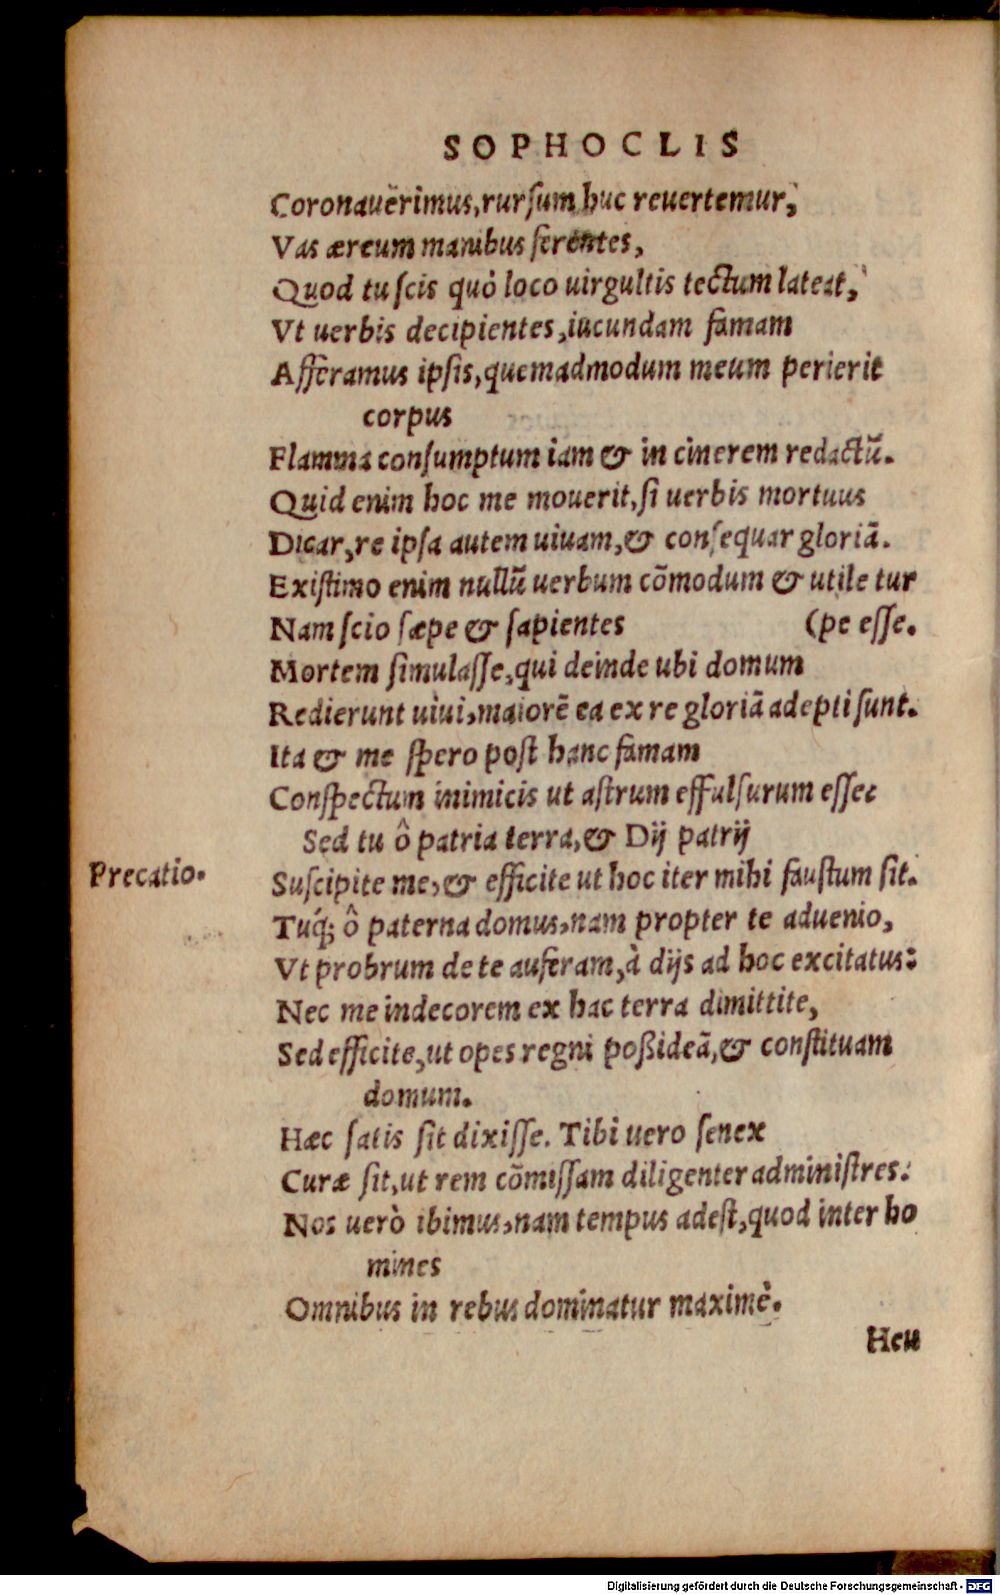 SOPHOCLIS
Coronauērimus, rurſum huc reuertemur,
Vas æreum manibus ferentes,
Quod tu ſcis quò loco uirgultis tectum lateat,
Vt uerbis decipientes, iucundam famam
Afferamus ipſis, quemadmodum meum perierit
corpus
Flamma conſumptum iam & in cinerem redactū.
Quid enim hoc me mouerit, ſi uerbis mortuus
Dicar, re ipſa autem uiuam, & conſequar gloriā.
Exiſtimo enim nullū uerbum cōmodum & utile tur
Nam ſcio ſæpe & ſapientes (pe eſſe.
Mortem ſimulaſſe, qui deinde ubi domum
Redierunt uiui, maiorē ea ex re gloriā adepti ſunt.
Ita & me ſpero poſt hanc famam
Conſpectum inimicis ut aſtrum effulſurum eſſe
Sed tu ô patria terra, & Dij patrij
Precatio.
Suſcipite me, & efficite ut hoc iter mihi fauſtum ſit.
Tuq́; ô paterna domus, nam propter te aduenio,
Vt probrum de te auferam, à dijs ad hoc excitatus:
Nec me indecorem ex hac terra dimittite,
Sed efficite, ut opes regni poßideā, & conſtituam
domum.
Hæc ſatis ſit dixiſſe. Tibi uero ſenex
Curæ ſit, ut rem cōmiſſam diligenter adminiſtres:
Nos uerò ibimus, nam tempus adeſt, quod inter ho
mines
Omnibus in rebus dominatur maximè.
Heu
Digitalisierung gefördert durch die Deutsche Forschungsgemeinschaft - DFG